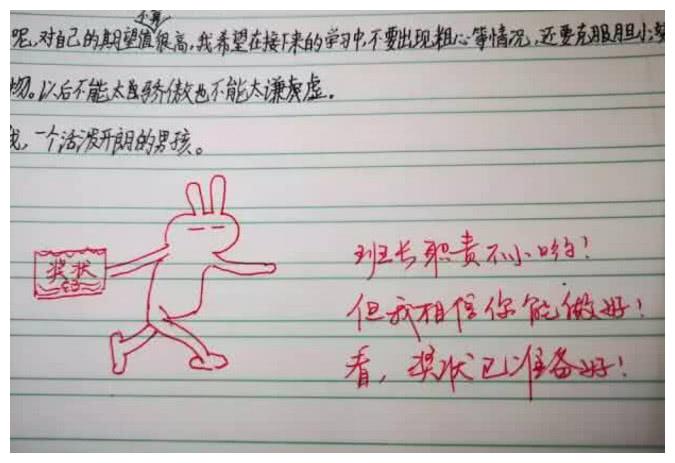 不算
呢,对自己的期望值很高,我希望在接下来的学习中,不要出现粗心等情况,还要克服胆小
物。以后不能太骄傲也不能太谦虚。
我,一个活泼开朗的男孩。
奖状
班长职责不小哟!
但我相信你能做好!
看,奖状已准备好!